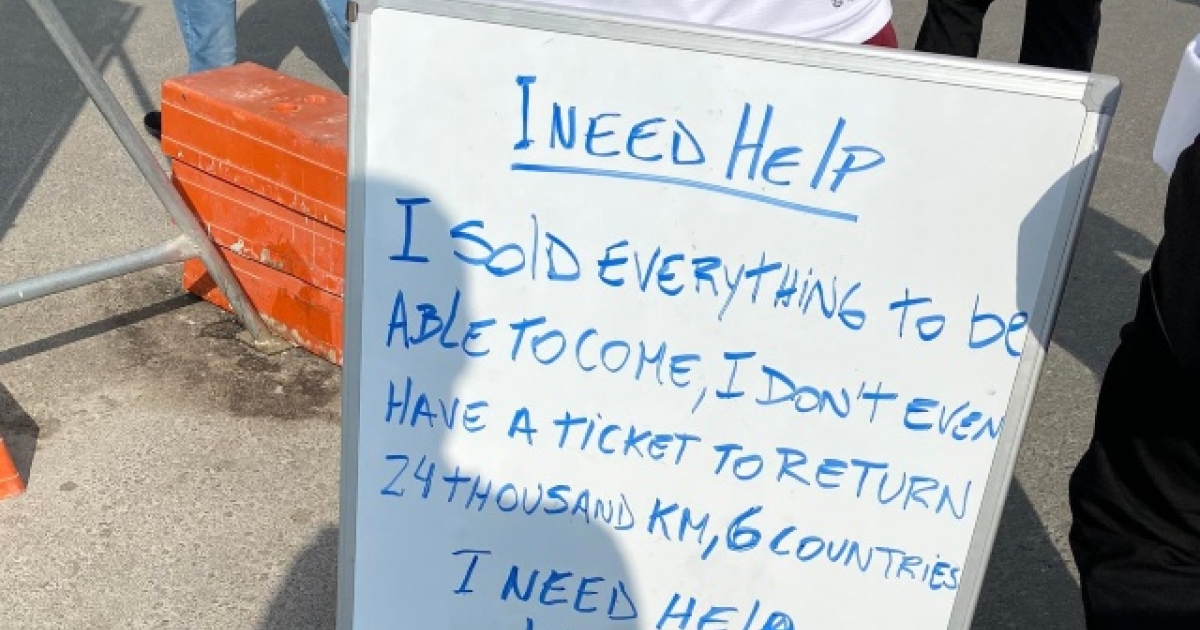 I NEED HElP
I SolD EVERYTHING to be
ABLE TO COME, I DON't EVEN
HAVE A TiCKET TO RETURN
24 tHOUSAND KM, 6 COUNTRiES
I NEED HElP